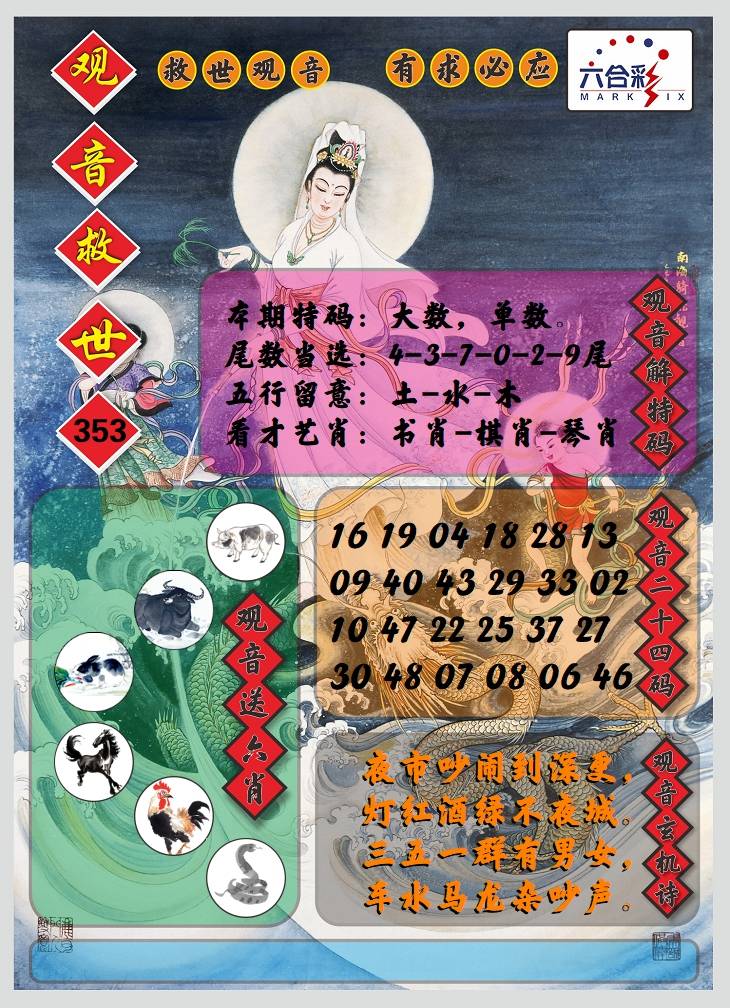 观音救世
353
救世观音 有求必应
六合彩
MARK SIX
本期特码：大数，单数。
尾数当选：4-3-7-0-2-9尾
五行留意：土-水-木
看才艺肖：书肖-棋肖-琴肖
观音解特码
观音送六肖
16 19 04 18 28 13
09 40 43 29 33 02
10 47 22 25 37 27
30 48 07 08 06 46
观音二十四码
夜市吵闹到深更，
灯红酒绿不夜城。
三五一群有男女，
车水马龙杂吵声。
观音玄机诗